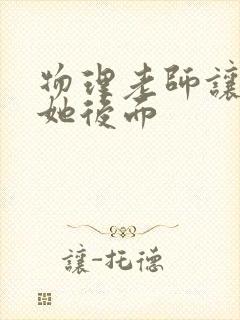 物理老師讓
她後而
讓-托德